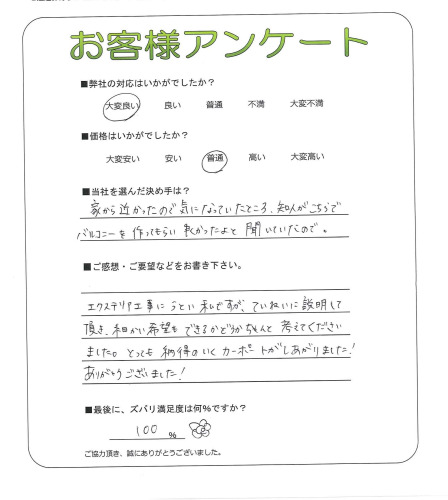 お客様アンケート
■弊社の対応はいかがでしたか？
大変良い 良い 普通 不満 大変不満
■価格はいかがでしたか？
大変安い 安い 普通 高い 大変高い
■当社を選んだ決め手は？
家から近かったので気になっていたところ、知人がこちらで
バルコニーを作ってもらい良かったよと聞いていたので。
■ご感想・ご要望などをお書き下さい。
エクステリア工事にうとい私ですが、ていねいに説明して
頂き、細かい希望もできるかどうかちゃんと考えてください
ました。とっても納得のいくカーポートがしあがりました！
ありがとうございました！
■最後に、ズバリ満足度は何%ですか？
100 %
ご協力頂き、誠にありがとうございました。